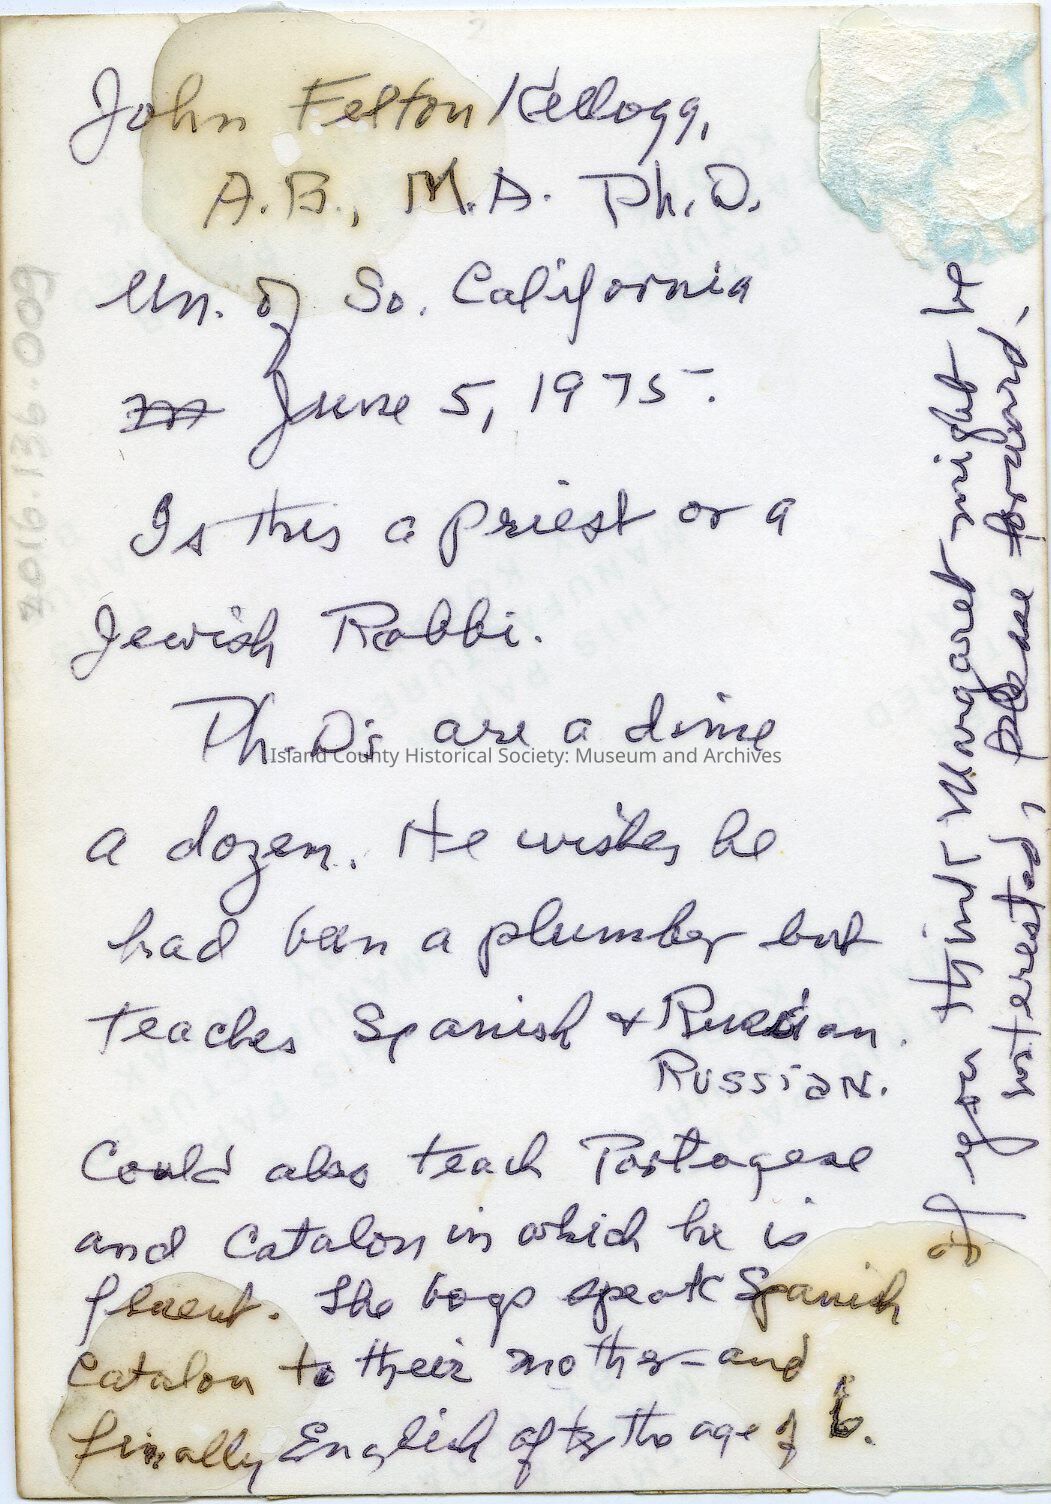 John Felton Kellogg,
A.B., M.A. Ph.D.
Un. of So. California
June 5, 1975.
Is this a priest or a
Jewish Rabbi.
Ph.D's are a dime
Island County Historical Society: Museum and Archives
a dozen. He wishes he
had been a plumber but
teaches Spanish & Russian.
Russian.
Could also teach Portogese
and Catalon in which he is
fluent. The boys speak Spanish
Catalon to their mother - and
finally English after the age of 6.
If you think Margaret might be
interested, please forward.
2016.136.009